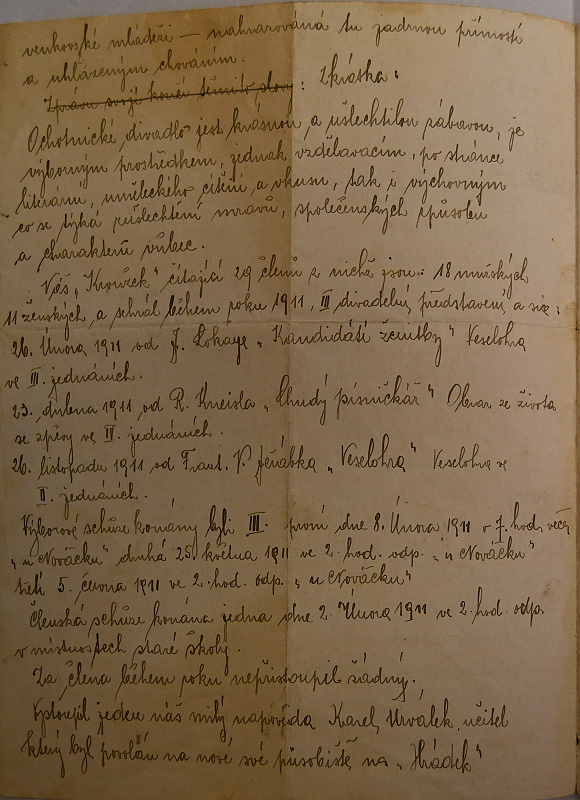 venkovské mládeži — nahrazována tu jadrnou přímostí
a uhlazeným chováním.
Zprávu svoji končí těmito slovy: Zkrátka:
Ochotnické divadlo jest krásnou a ušlechtilou zábavou, je
výborným prostředkem, jednak vzdělavacím, po stránce
literární, uměleckého cítění a vkusu, tak i výchovným
co se týká zušlechtění mravů, společenských způsobů
a charakterů vůbec.
Náš „Kroužek" čítající 29 členů z nichž jsou: 18 mužských
11 ženských, a sehrál během roku 1911, III divadelní představení a sice:
26. Února 1911 od J. Štolby „Kandidáti ženitby" Veselohra
ve III. jednáních.
23. dubna 1911 od R. Kneisla „Chudý písničkář" Obraz ze života
se zpěvy ve IV. jednáních.
26. listopadu 1911 od Frant. V. Jeřábka „Veselohra" Veselohra ve
II. jednáních.
Výborové schůze konány byli III. první dne 8. Února 1911 v 7. hod. več.
„u Nováčku" druhá 25. května 1911 ve 2. hod. odp. „u Nováčku"
třetí 5. června 1911 ve 2. hod. odp. „u Nováčku"
Členská schůze konána jedna dne 2. Února 1911 ve 2. hod. odp.
v místnostech staré školy.
Za člena během roku nepřistoupil žádný.
Vystoupil jeden náš milý napověda Karel Urválek, učitel
který byl povolán na nové své působiště na „Hrádek"